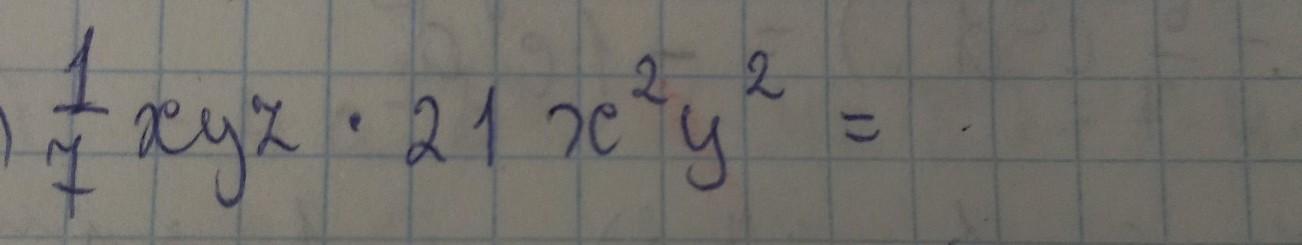 ) 1/7 xyz · 21 x²y² =